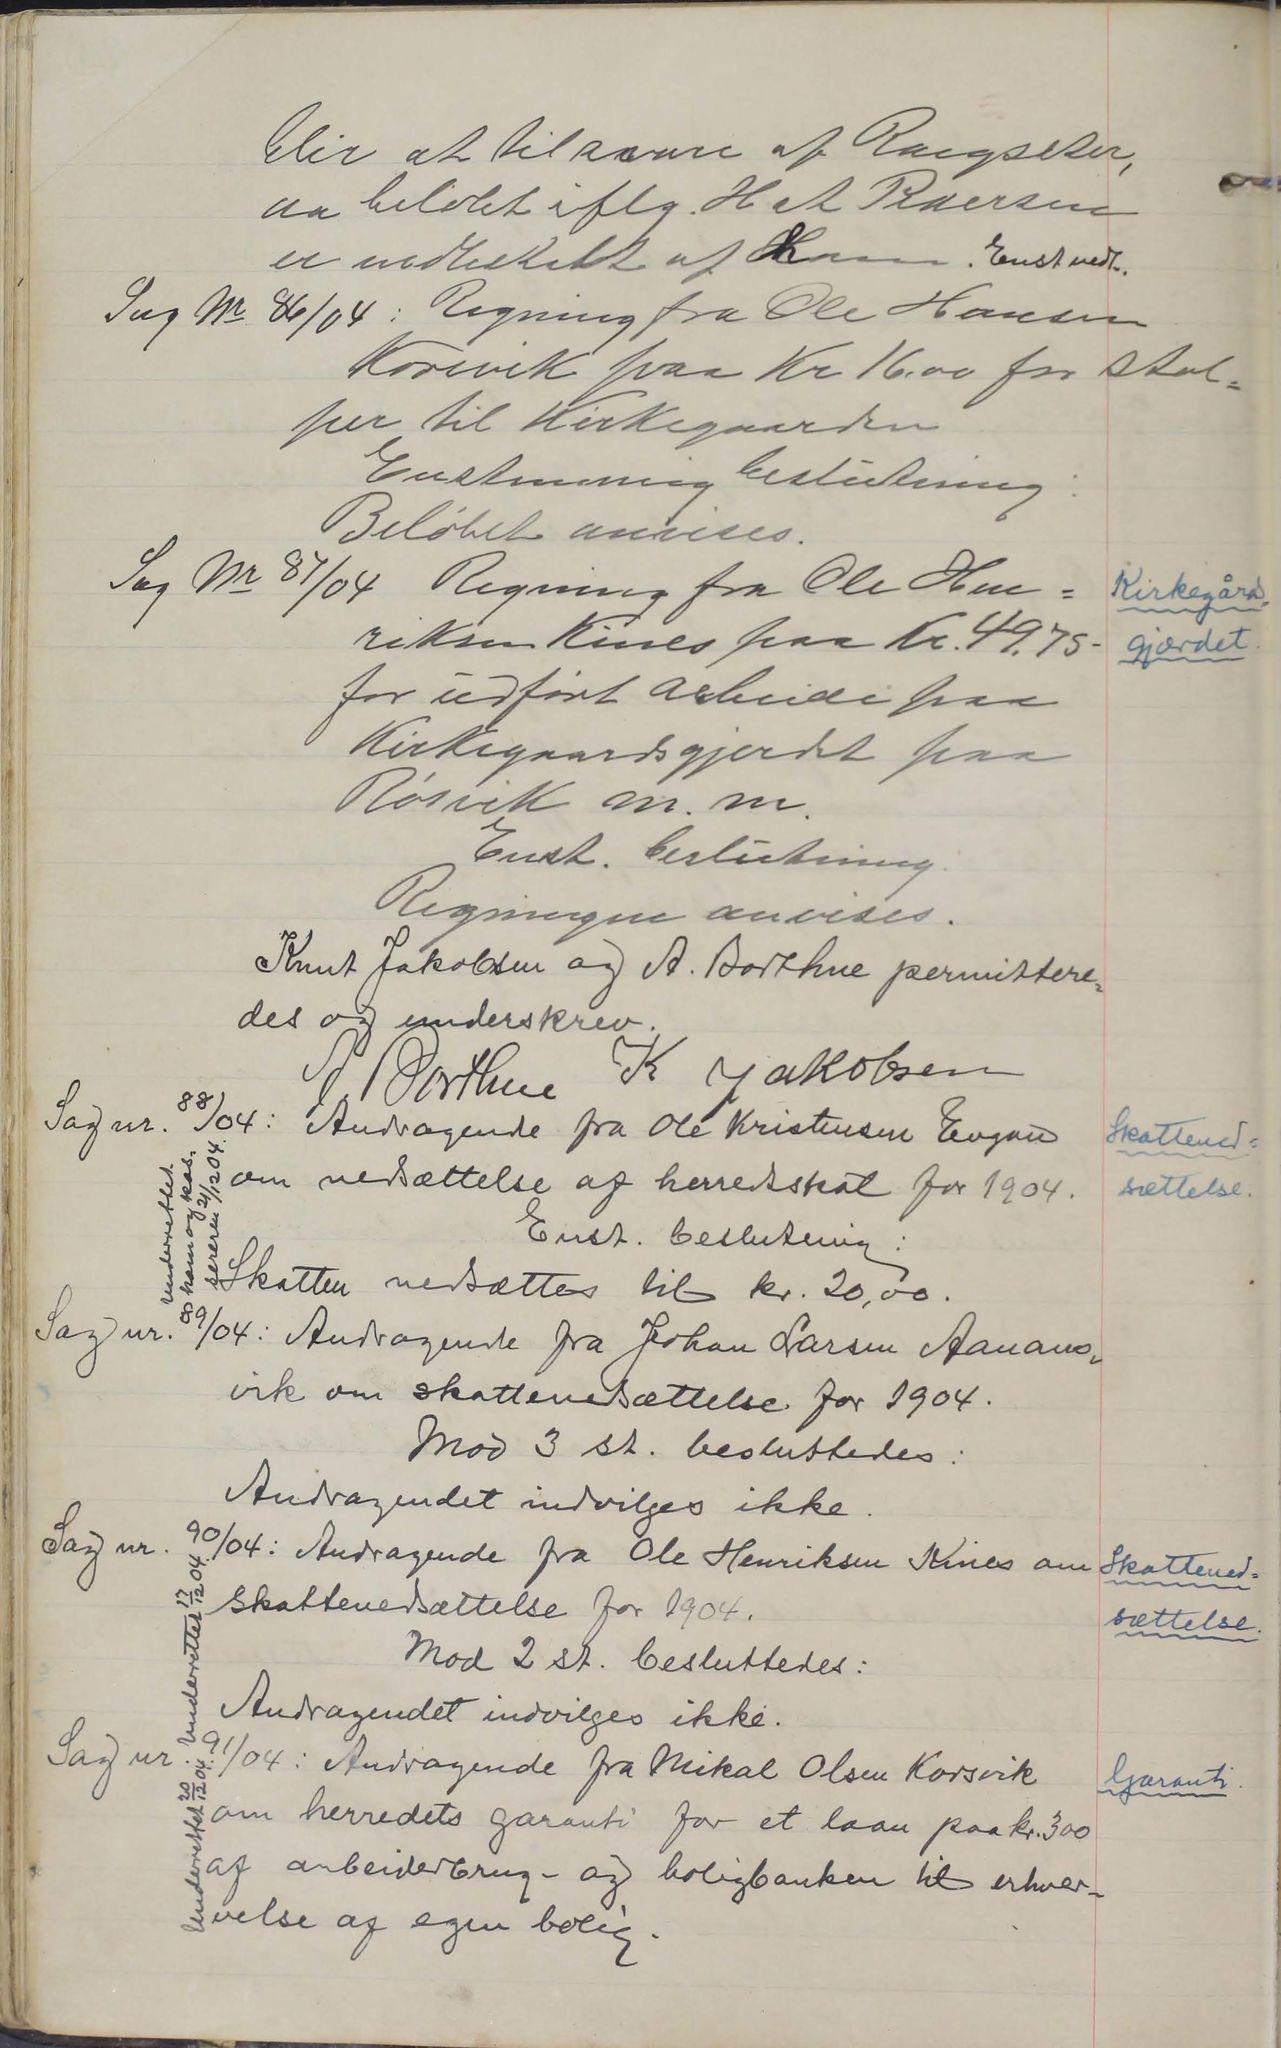 blir at tilsvare af
aa beløbet iflg. H A Pedersen
er af ham. Enst vedt.
Sag Nr 86/04: Regning fra Ole Hansen
Korsvik paa Kr 16.00 for stol=
per til Kirkegaarden
Enstemmig beslutning:
Beløbet anvises.
Sag Nr 87/04 Regning fra Ole Hen=
riksen Kines paa Kr. 49.75-
for udført arbeide paa
Kirkegaardsgjerdet paa
Røsvik m. m.
Enst. beslutning
Regningen anvises.
Kirkegårds
gjærdet.
Knut Jakobsen og A. Borthne permittere=
des og underskrev.
A. Borthne K Jakobsen
Sag nr. 88/04: Andragende fra Ole Kristensen
om nedsættelse af herredsskat for 1904.
Enst. beslutning:
Skatten nedsættes til kr. 20,00.
Skattened=
sættelse.
Underrettet
ham og kas-
sereren 21/12 04.
Sag nr. 89/04: Andragende fra Johan Larsen Aanans-
vik om skattenedsættelse for 1904.
Mod 3 st. besluttedes:
Andragendet indvilges ikke.
Sag nr. 90/04: Andragende fra Ole Henriksen Kines om
skattenedsættelse for 1904.
Mod 2 st. besluttedes:
Andragendet indvilges ikke.
Skattened=
sættelse.
Underrettet 17/12 04.
Sag nr. 91/04: Andragende fra Mikal Olsen Korsvik
om herredets garanti for et laan paa kr. 300
af arbeiderbrug- og boligbanken til erhver-
velse af egen bolig.
Garanti.
Underrettet 20/12 04.